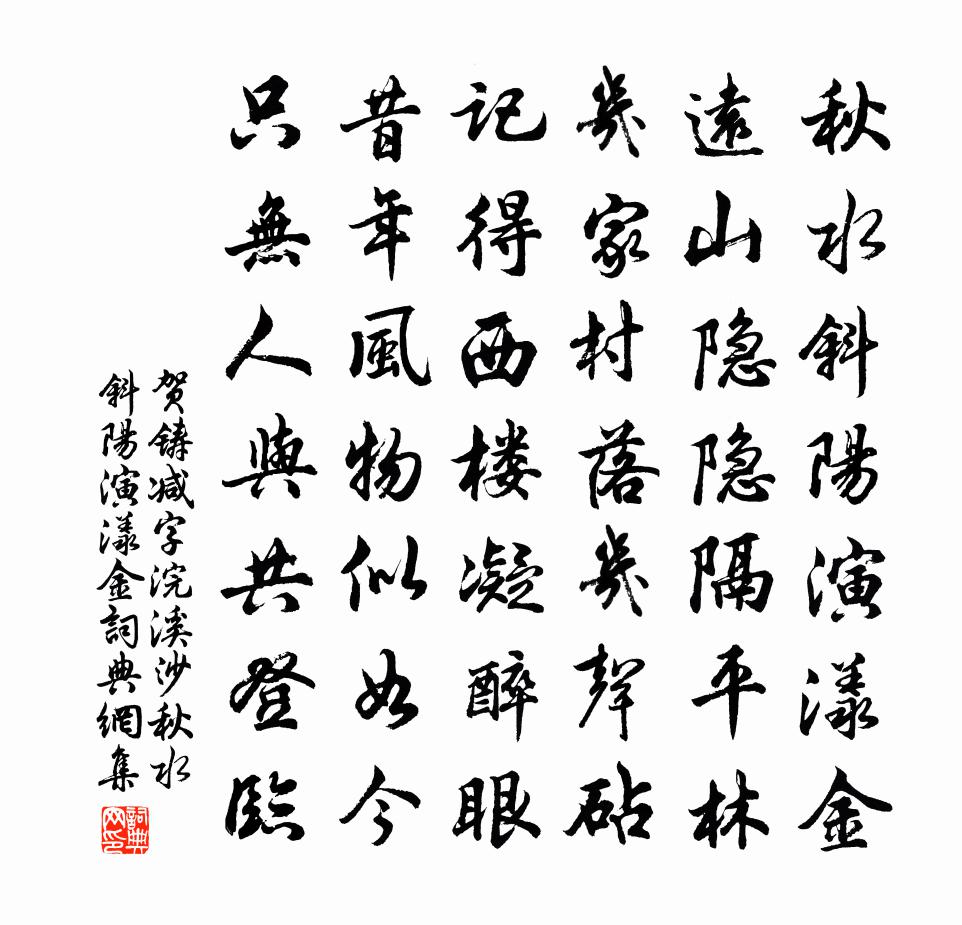 秋水斜陽演漾金
遠山隐隐隔平林
幾家村落幾聲砧
記得西楼凝醉眼
昔年風物似如今
只無人與共登臨
贺鑄减字浣溪沙秋水
斜陽演漾金詞典網集
詞典網印